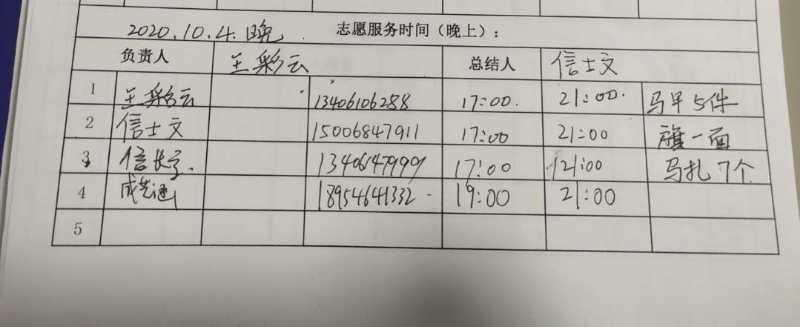 2020.10.4.晚 志愿服务时间（晚上）：
负责人 王彩云 总结人 信士文
1 王彩云 13406106288 17:00. 21:00. 马甲5件
2 信士文 15006847911 17:00 21:00 旗一面
3 信长 13406147999 17:00 21:00 马扎7个
4 18954641332 19:00 21:00
5